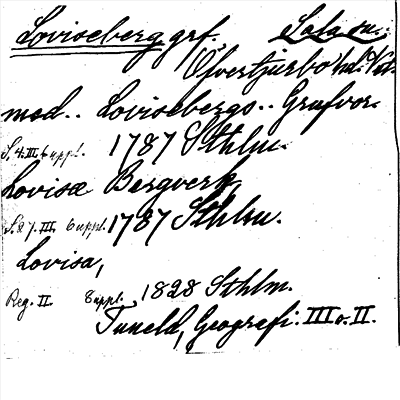 Loviseberg grf. Sala sn.
Öfvertjurbo hd. Vstm.
med.. Lovisebergs.. Grufvor.
S. 4. III. 6 uppl. 1787 Sthlm.
Lovisæ Bergverk,
S. 27. III. 6 uppl. 1787 Sthlm.
Lovisa,
Reg. II. 8 uppl., 1828 Sthlm.
Tuneld, Geografi. III o. II.